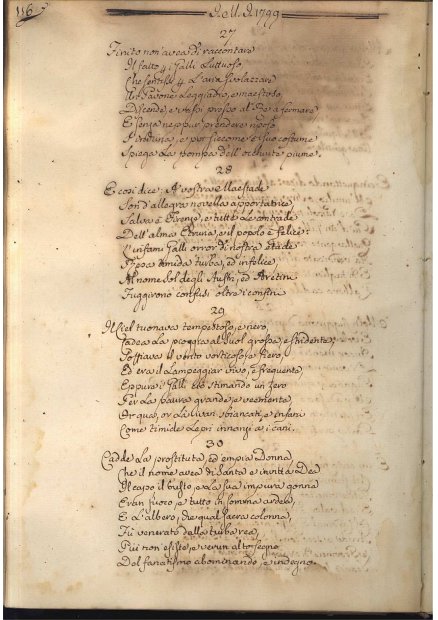 116
A.M.D. 1799
27
Finito non' avea di raccontare
Il fatto p i Galli luttuoso,
Che sentissi p l'aria svolazzare
Un Pavone leggiadro, e maestoso,
Discende, e vassi presso al Re a fermare
E senza neppur prendere riposo
Perduna, e por siccome è suo costume
Spiega la pompa dell'occhiute piume.
28
E così dice: A' vostra Maestade
Son' d'allegra novella apportatrice,
Salva è Firenze, e tutte le contrade
Dell'alma Etruria, e il popolo è felice:
L'infami Galli orror di nostra etade
Feccia timida turba, ed infelice,
Al nome sol degli Austri, ed Aretini
Fuggirono confusi oltre i confini
29
Il Ciel tuonava tempestoso, e nero,
Cadea la pioggia al suol grossa, e stridente,
Soffiava il vento vorticoso, e fiero,
Ed era il lampeggiar vivo, e frequente
Eppure i Galli ciò stimando un zero
Per la paura grande, e veemente,
Or quà, or là givan sbiancati, e ansanti
Come timide Lepri innanzi a i cani.
30
Cadde la prostituta, ed empia Donna
Che il nome avea di Santa e invitta Dea
Il capo il busto, e la sua impura gonna
Eran fuoco, e tutto in somma ardea,
E l'albero, che qual sacra colonna,
Fù venerato dalla turba rea,
Più non esiste, e verun altro segno
Del fanatismo abominando, e indegno.